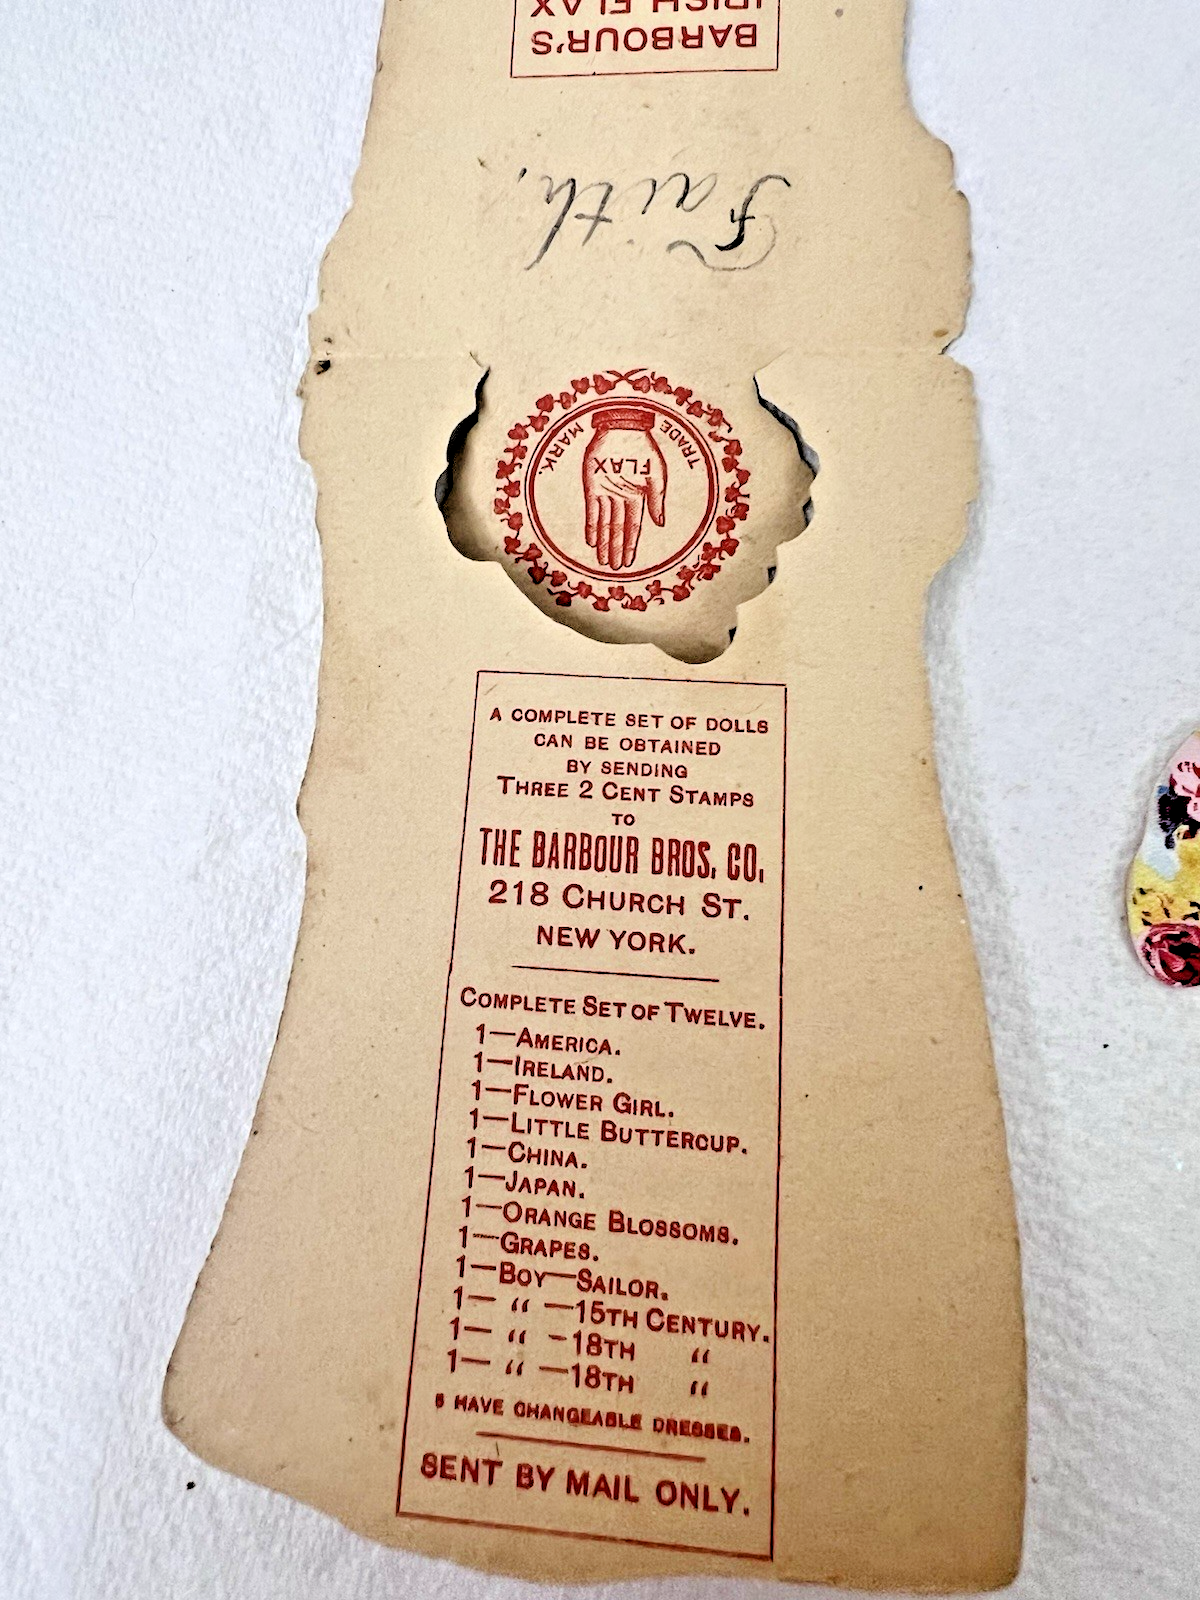 BARBOUR'S
IRISH FLAX
Faith.
TRADE MARK.
FLAX
A COMPLETE SET OF DOLLS
CAN BE OBTAINED
BY SENDING
THREE 2 CENT STAMPS
TO
THE BARBOUR BROS. CO.
218 CHURCH ST.
NEW YORK.
COMPLETE SET OF TWELVE.
1—AMERICA.
1—IRELAND.
1—FLOWER GIRL.
1—LITTLE BUTTERCUP.
1—CHINA.
1—JAPAN.
1—ORANGE BLOSSOMS.
1—GRAPES.
1—BOY—SAILOR.
1— “ —15TH CENTURY.
1— “ —18TH “
1— “ —18TH “
HAVE CHANGEABLE DRESSES.
SENT BY MAIL ONLY.